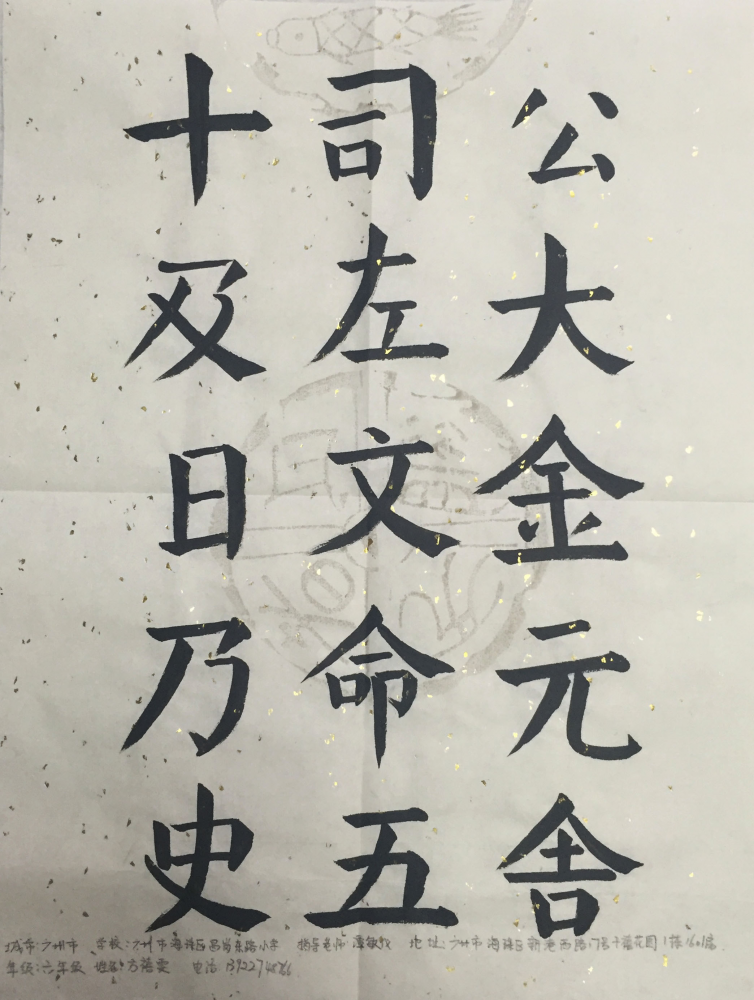 公大金元舍
司左文命五
十及日乃史
城市:广州市 学校:广州市海珠区昌岗东路小学 指导老师 地址:广州市海珠区新港西路
年级:六年级 姓名:方 电话